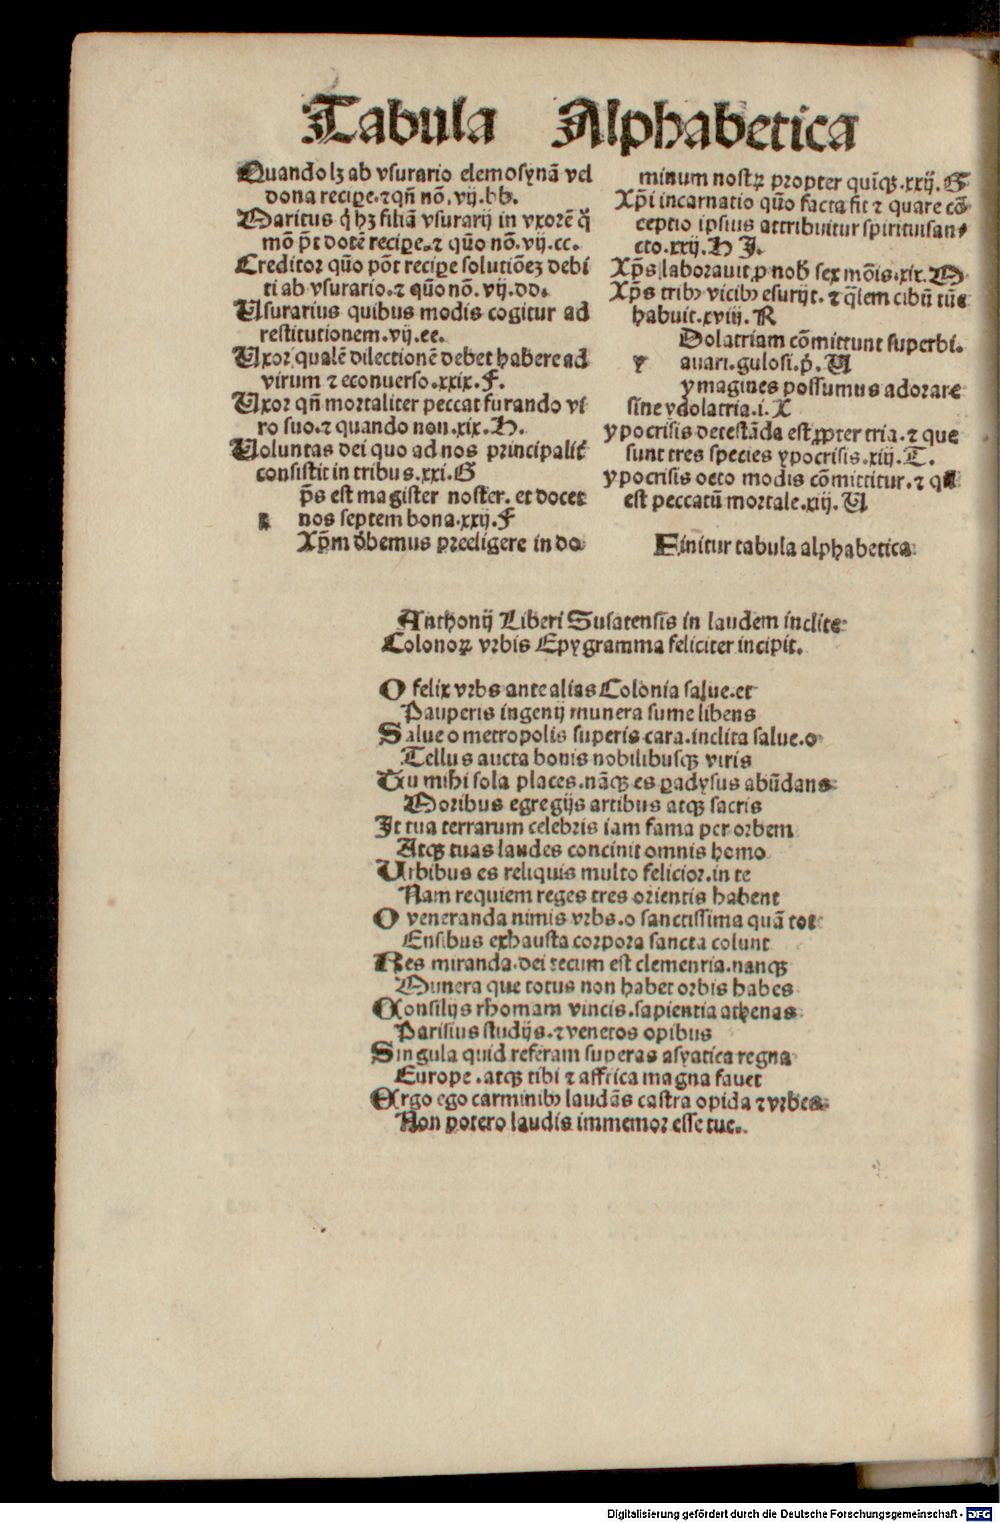 Tabula Alphabetica
Quando lꝫ ab vsurario elemosynã vel
dona recipe.⁊ qñ nõ.vij.bb.
Maritus q̇ hꝫ filiã vsurarij in vxorẽ q̃
mõ p̃t dotẽ recipe.⁊ quõ nõ.vij.cc.
Creditor quõ põt recipe solutiõeꝫ debi
ti ab vsurario.⁊ quõ nõ. vij.dd.
Usurarius quibus modis cogitur ad
restitutionem.vij.ee.
Uxor qualẽ dilectionẽ debet habere ad
virum ⁊ econuerso.xxix.F.
Uxor qñ mortaliter peccat furando vi
ro suo.⁊ quando non.xix.H.
Uoluntas dei quo ad nos principalit̃
consistit in tribus.xxi.G
p̃s est magister noster. et docet
nos septem bona.xxij.F
Xp̃m debemus preeligere in do
minum nostꝝ propter quiq̃ꝫ.xxij.G
Xp̃i incarnatio quõ facta sit ⁊ quare cõ
ceptio ipsius attribuitur spirituisan⸗
cto.xxij.H I.
Xp̃s laborauit ꝓ nob̃ sex mõis.xix.M
Xp̃s tribꝰ vicibꝰ esurijt. ⁊ q̃lem cibũ tũc
habuit.xviij.R
Dolatriam cõmittunt superbi.
Y auari.gulosi.p̃.U
ymagines possumus adorare
sine ydolatria.i.X
ypocrisis detestãda est ꝓpter tria.⁊ que
sunt tres species ypocrisis.xiij.T.
ypocrisis octo modis cõmittitur.⁊ qñ
est peccatũ mortale.xiij.U
Finitur tabula alphabetica.
Anthonij Liberi Susatensis in laudem inclite
Colonoꝝ vrbis Epygramma feliciter incipit.
O felix vrbs ante alias Colonia salue.et
Pauperis ingenij munera sume libens
Salue o metropolis superis cara.inclita salue.o
Tellus aucta bonis nobilibusqꝫ viris
Tu mihi sola places.nãqꝫ es padysus abũdans
Moribus egregijs artibus atqꝫ sacris
It tua terrarum celebris iam fama per orbem
Atqꝫ tuas laudes concinit omnis homo
Urbibus es reliquis multo felicior.in te
Nam requiem reges tres orientis habent
O veneranda nimis vrbs.o sanctissima quã tot
Ensibus exhausta corpora sancta colunt
Res miranda.dei tecum est clementia.nanqꝫ
Munera que totus non habet orbis habes
Consilijs rhomam vincis.sapientia athenas
Parisius studijs.⁊ venetos opibus
Singula quid referam superas asyatica regna
Europe.atqꝫ tibi ⁊ affrica magna fauet
Ergo ego carminibꝰ laudãs castra opida ⁊ vrbes
Non potero laudis immemor esse tue.
Digitalisierung gefördert durch die Deutsche Forschungsgemeinschaft - DFG